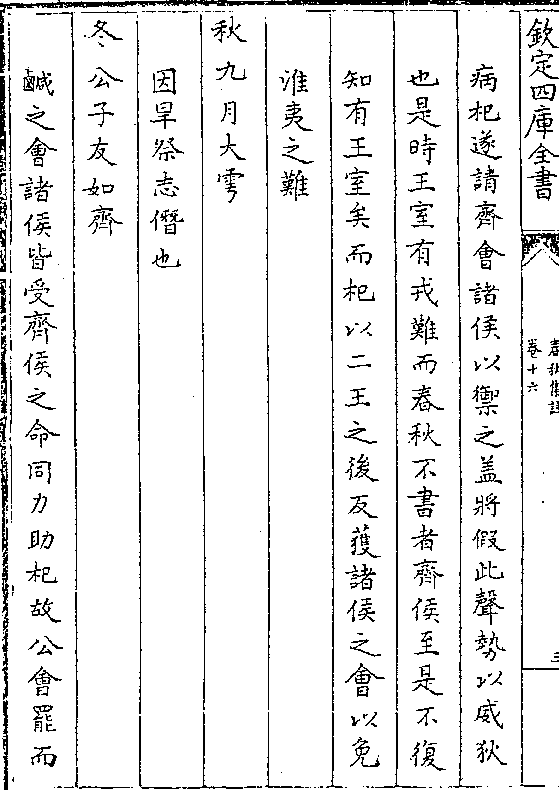 欽定四庫全書
卷十六
病杞遂請齊會諸侯以禦之盖將假此聲勢以威狄
也是時王室有戎難而春秋不書者齊侯至是不復
知有王室矣而杞以二王之後反獲諸侯之會以免
淮夷之難
秋九月大雩
因旱祭志僭也
冬公子友如齊
鹹之會諸侯皆受齊侯之命同力助杞故公會罷而